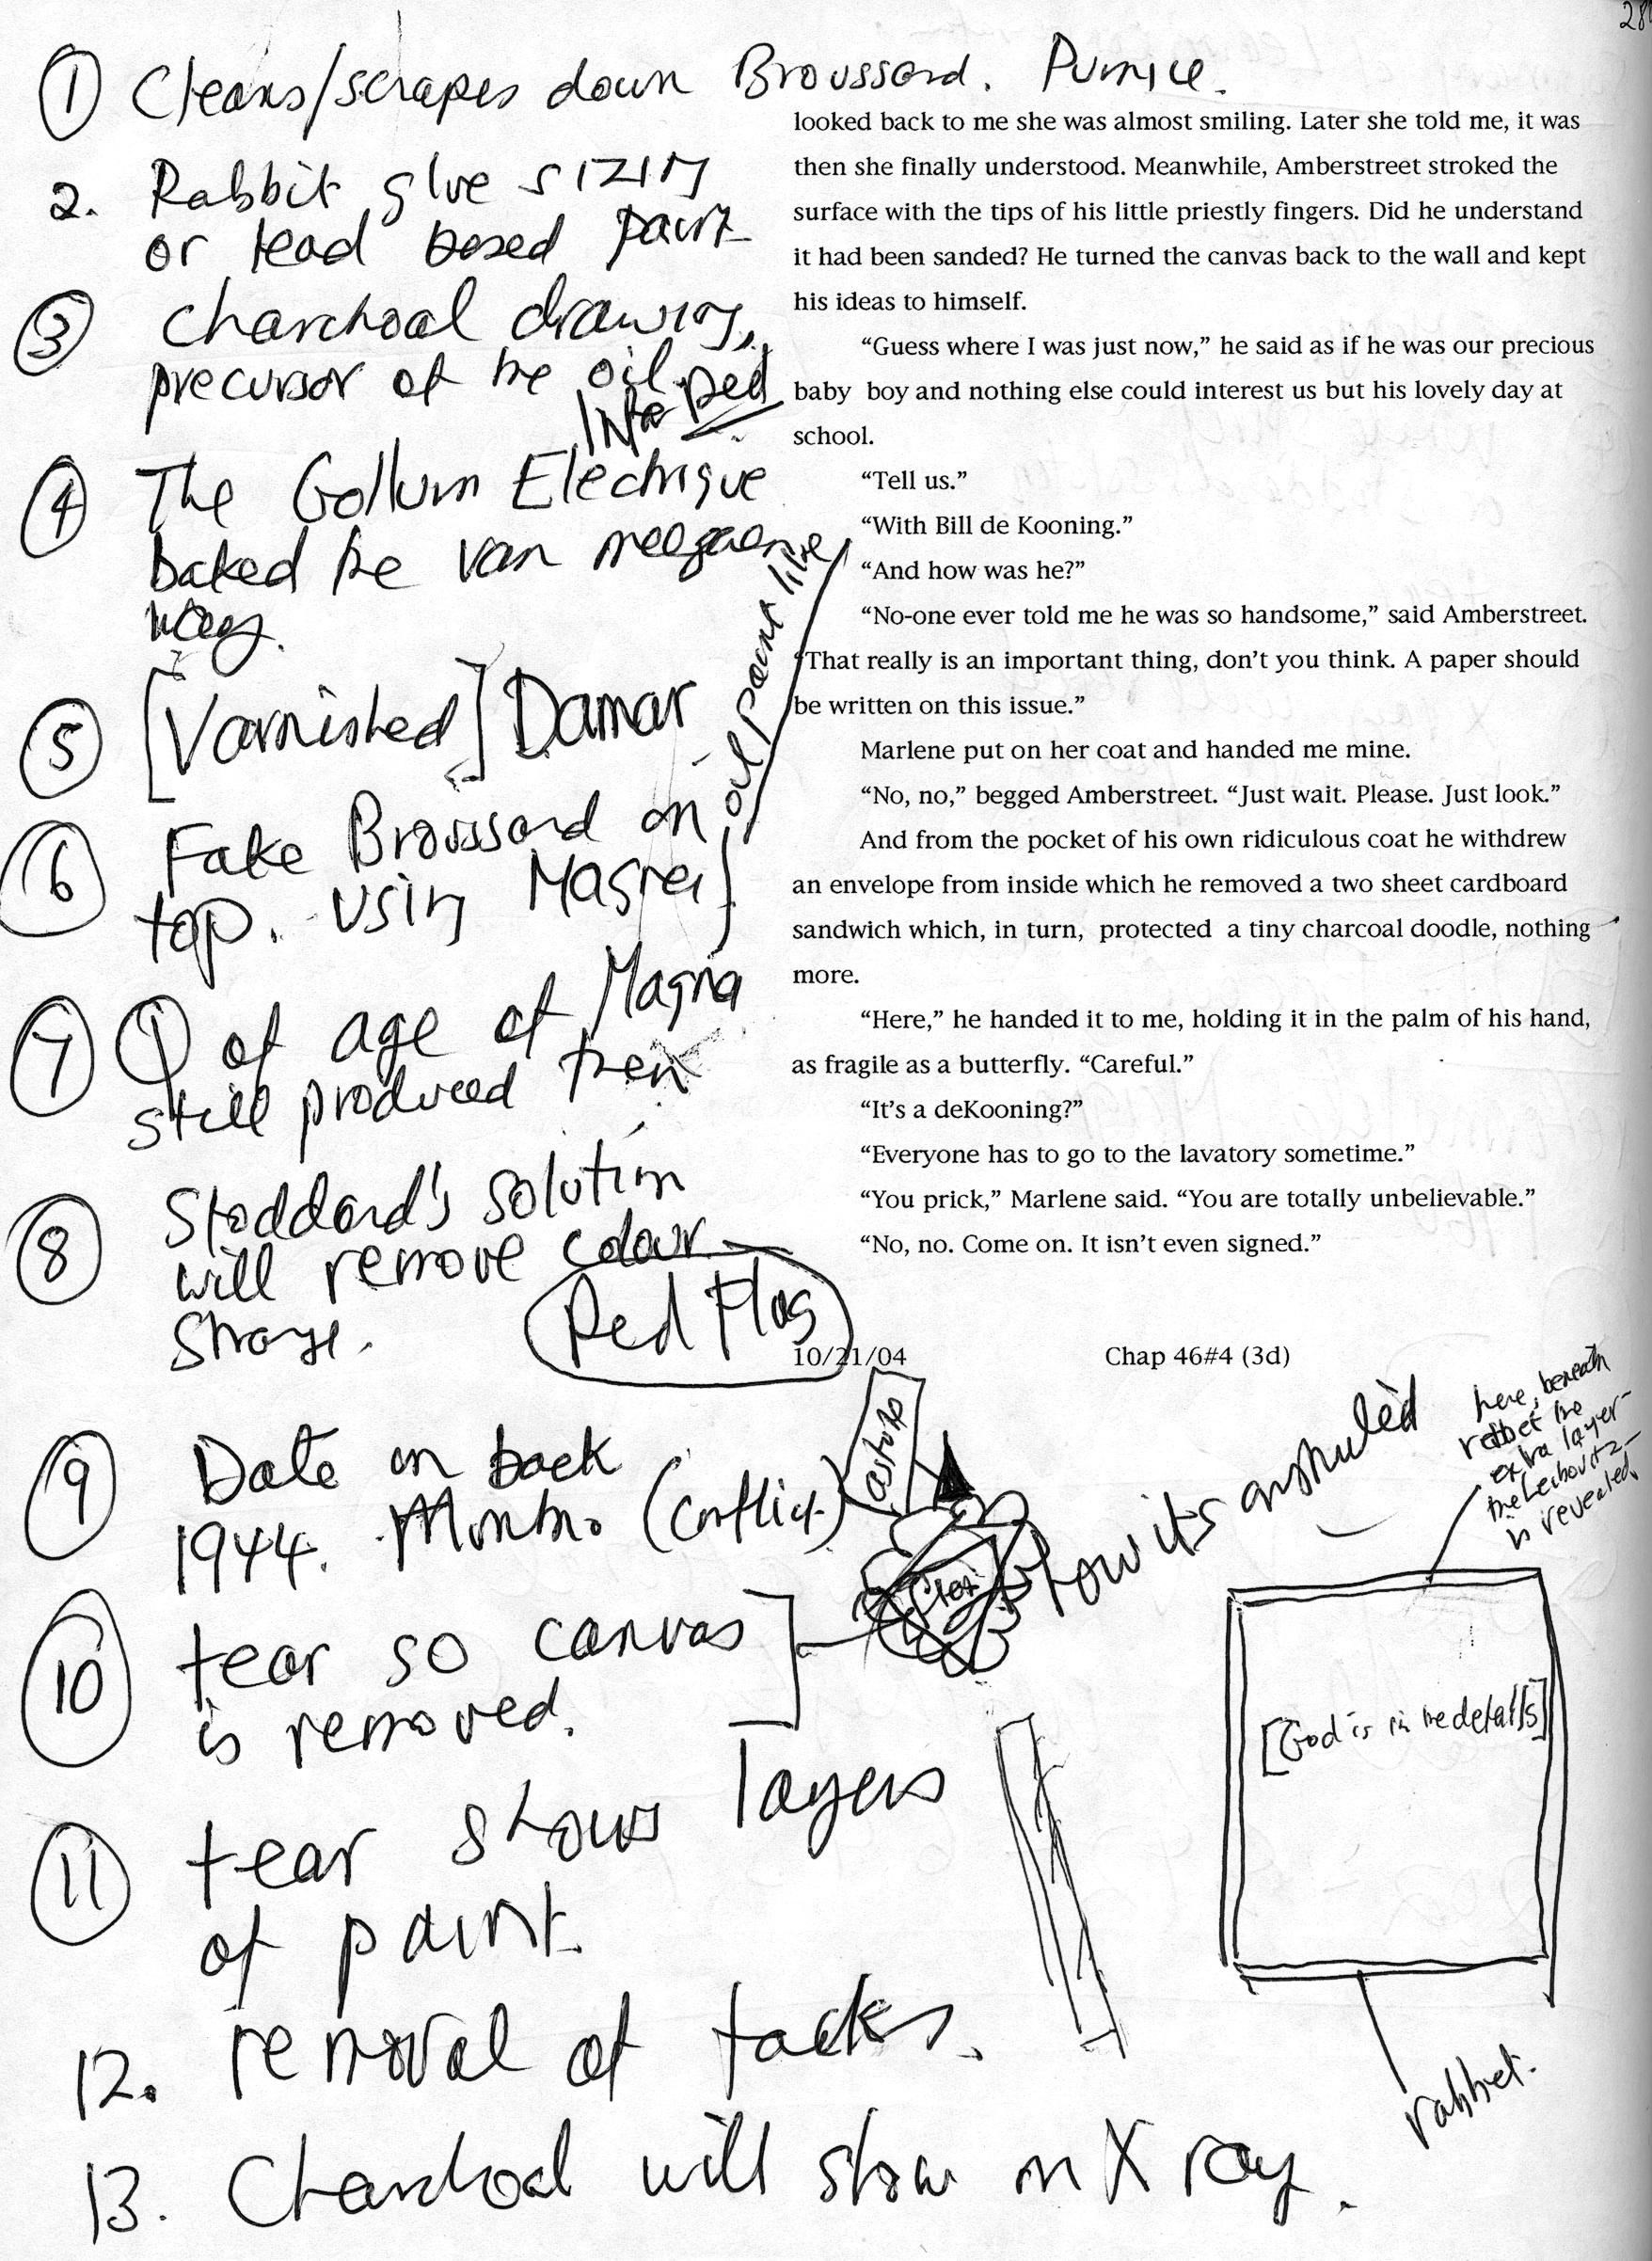 28
① Cleans/scrapes down Broussard. Pumice.
2. Rabbit glue sizing
or lead based paint
③ Charchoal drawing,
precursor of the oil.
Infra Red
④ The Gollum Electrique
baked the van meegeren
way.
⑤ [Varnished] Damar
⑥ Fake Broussard on
top. Using Magna]
oil paint like
⑦ Q of age of Magna
still produced then
⑧ Stoddard's solution
will remove colour
Strange.
Red Flag
⑨ Date on back
1944. (Conflict)
⑩ tear so canvas
is removed.
⑪ tear shows layers
of paint.
12. removal of tacks.
13. Charchoal will show on X ray.
looked back to me she was almost smiling. Later she told me, it was
then she finally understood. Meanwhile, Amberstreet stroked the
surface with the tips of his little priestly fingers. Did he understand
it had been sanded? He turned the canvas back to the wall and kept
his ideas to himself.
“Guess where I was just now,” he said as if he was our precious
baby boy and nothing else could interest us but his lovely day at
school.
“Tell us.”
“With Bill de Kooning.”
“And how was he?”
“No-one ever told me he was so handsome,” said Amberstreet.
“That really is an important thing, don’t you think. A paper should
be written on this issue.”
Marlene put on her coat and handed me mine.
“No, no,” begged Amberstreet. “Just wait. Please. Just look.”
And from the pocket of his own ridiculous coat he withdrew
an envelope from inside which he removed a two sheet cardboard
sandwich which, in turn, protected a tiny charcoal doodle, nothing
more.
“Here,” he handed it to me, holding it in the palm of his hand,
as fragile as a butterfly. “Careful.”
“It’s a deKooning?”
“Everyone has to go to the lavatory sometime.”
“You prick,” Marlene said. “You are totally unbelievable.”
“No, no. Come on. It isn’t even signed.”
10/21/04 Chap 46#4 (3d)
How its
here, beneath
rebbet the
extra layer
the Leibovitz
is revealed.
[God is in the details]
rabbet.